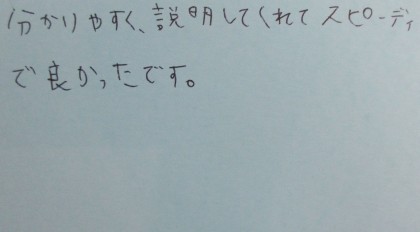 分かりやすく、説明してくれてスピーディ
で良かったです。